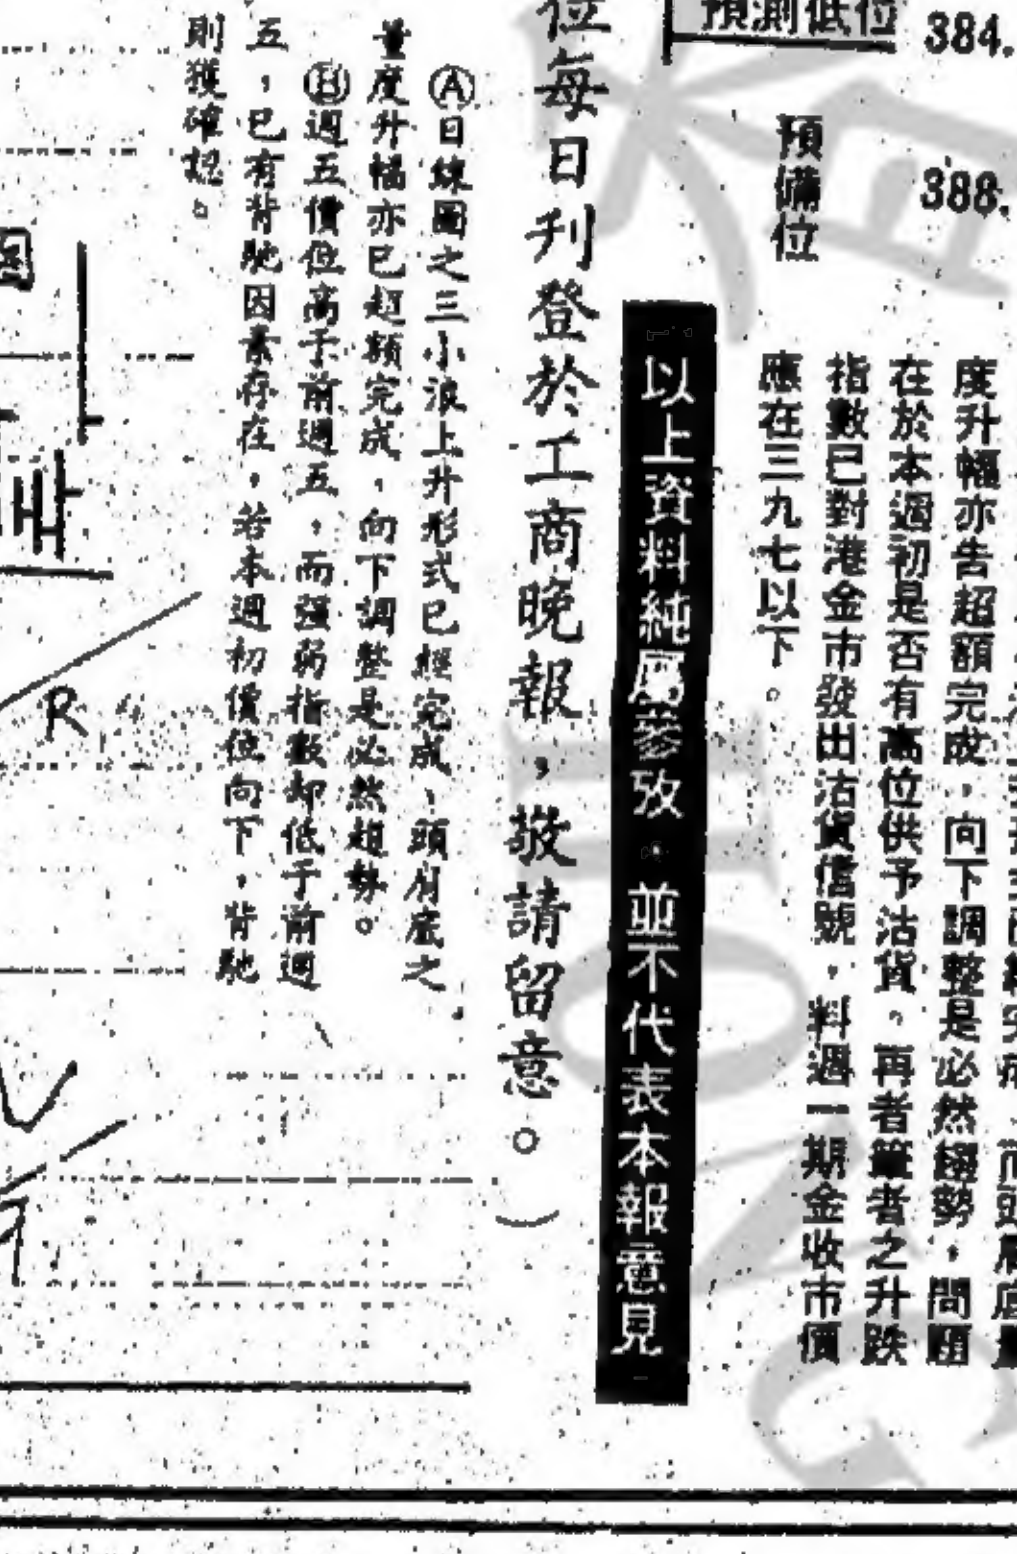 預測低位 384.
預備位 388.
度升幅亦告超額完成，向下調整是必然趨勢，問題
在於本週初是否有高位供予沽貨。再者筆者之升跌
指數已對港金市發出沽貨信號，料週一期金收市價
應在三九七以下。
以上資料純屬參攷·並不代表本報意見
位每日刊登於工商晚報，敬請留意。）
Ⓐ日線圖之三小浪上升形式已經完成，頭肩底之
量度升幅亦已超額完成，向下調整是必然趨勢。
Ⓑ週五價位高于前週五，而強弱指數却低于前週
五，已有背馳因素存在，若本週初價位向下，背馳
則獲確認。
圖
R
HONG